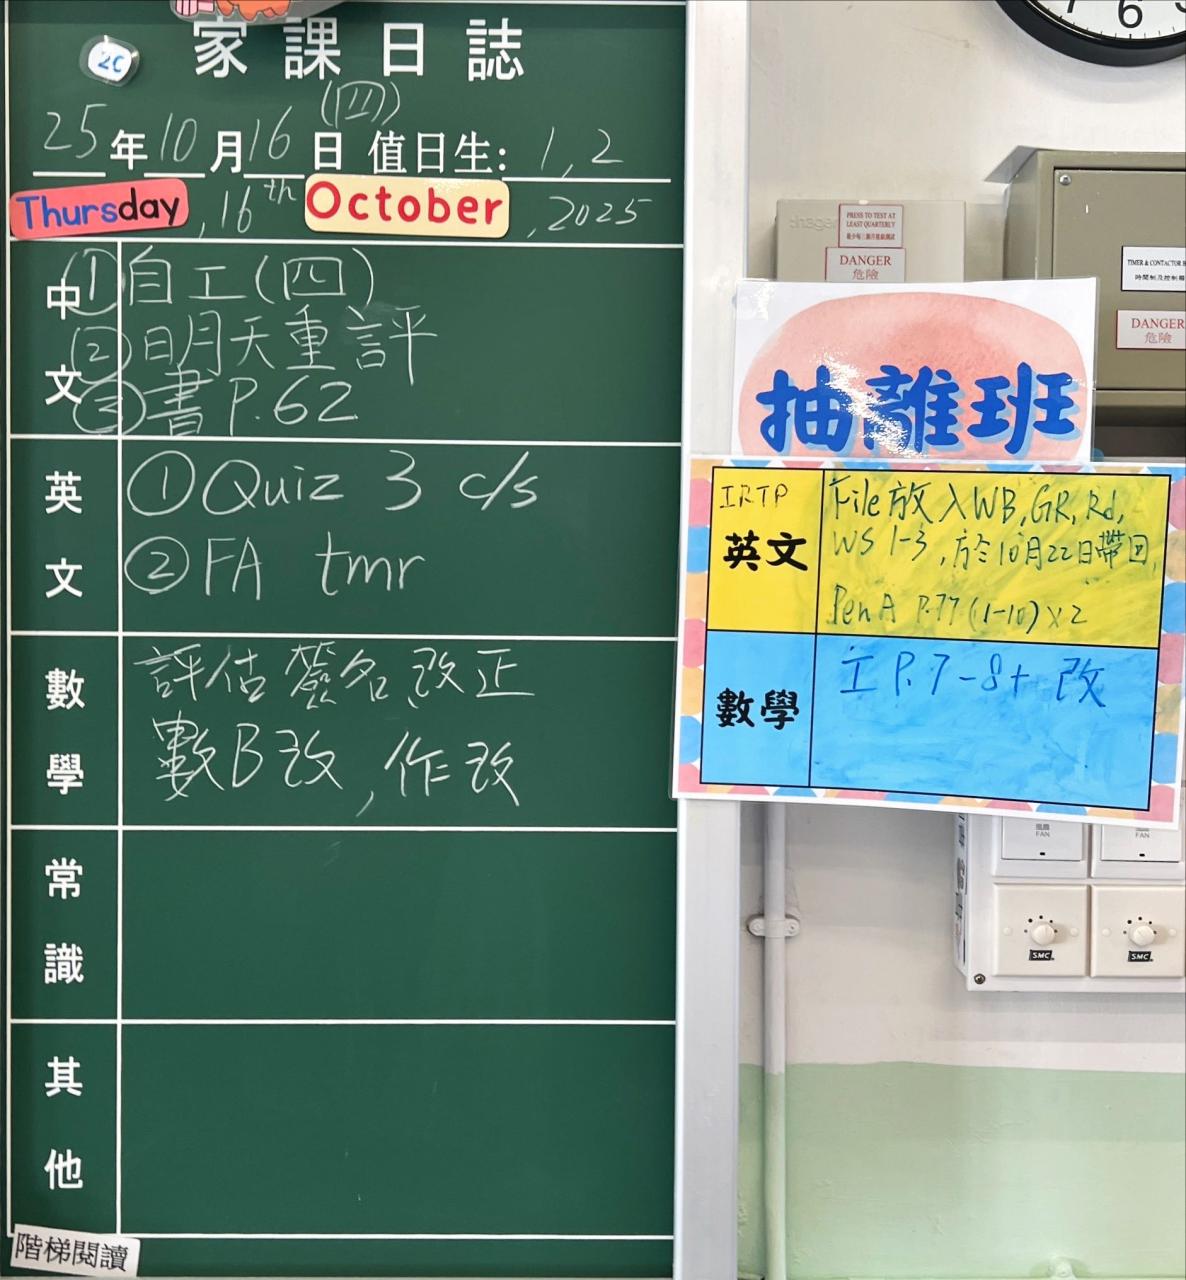 家課日誌
2C
25年10月16日(四) 值日生: 1,2
Thursday, 16th October, 2025
中文
①自工(四)
②明天重評
③書P.62
英文
①Quiz 3 c/s
②FA tmr
數學
評估簽名,改正
數B改,作改
常識
其他
階梯閱讀
6
hager
PRESS TO TEST AT
LEAST QUARTERLY
DANGER
危險
TIMER & CONTACTOR
DANGER
危險
抽離班
IRTP
英文
File放入WB,GR,Rd,
WS 1-3,於10月22日帶回,
Pen A P.77(1-10)x2
數學
工P.7-8+改
風扇
FAN
風扇
FAN
SMC
SMC